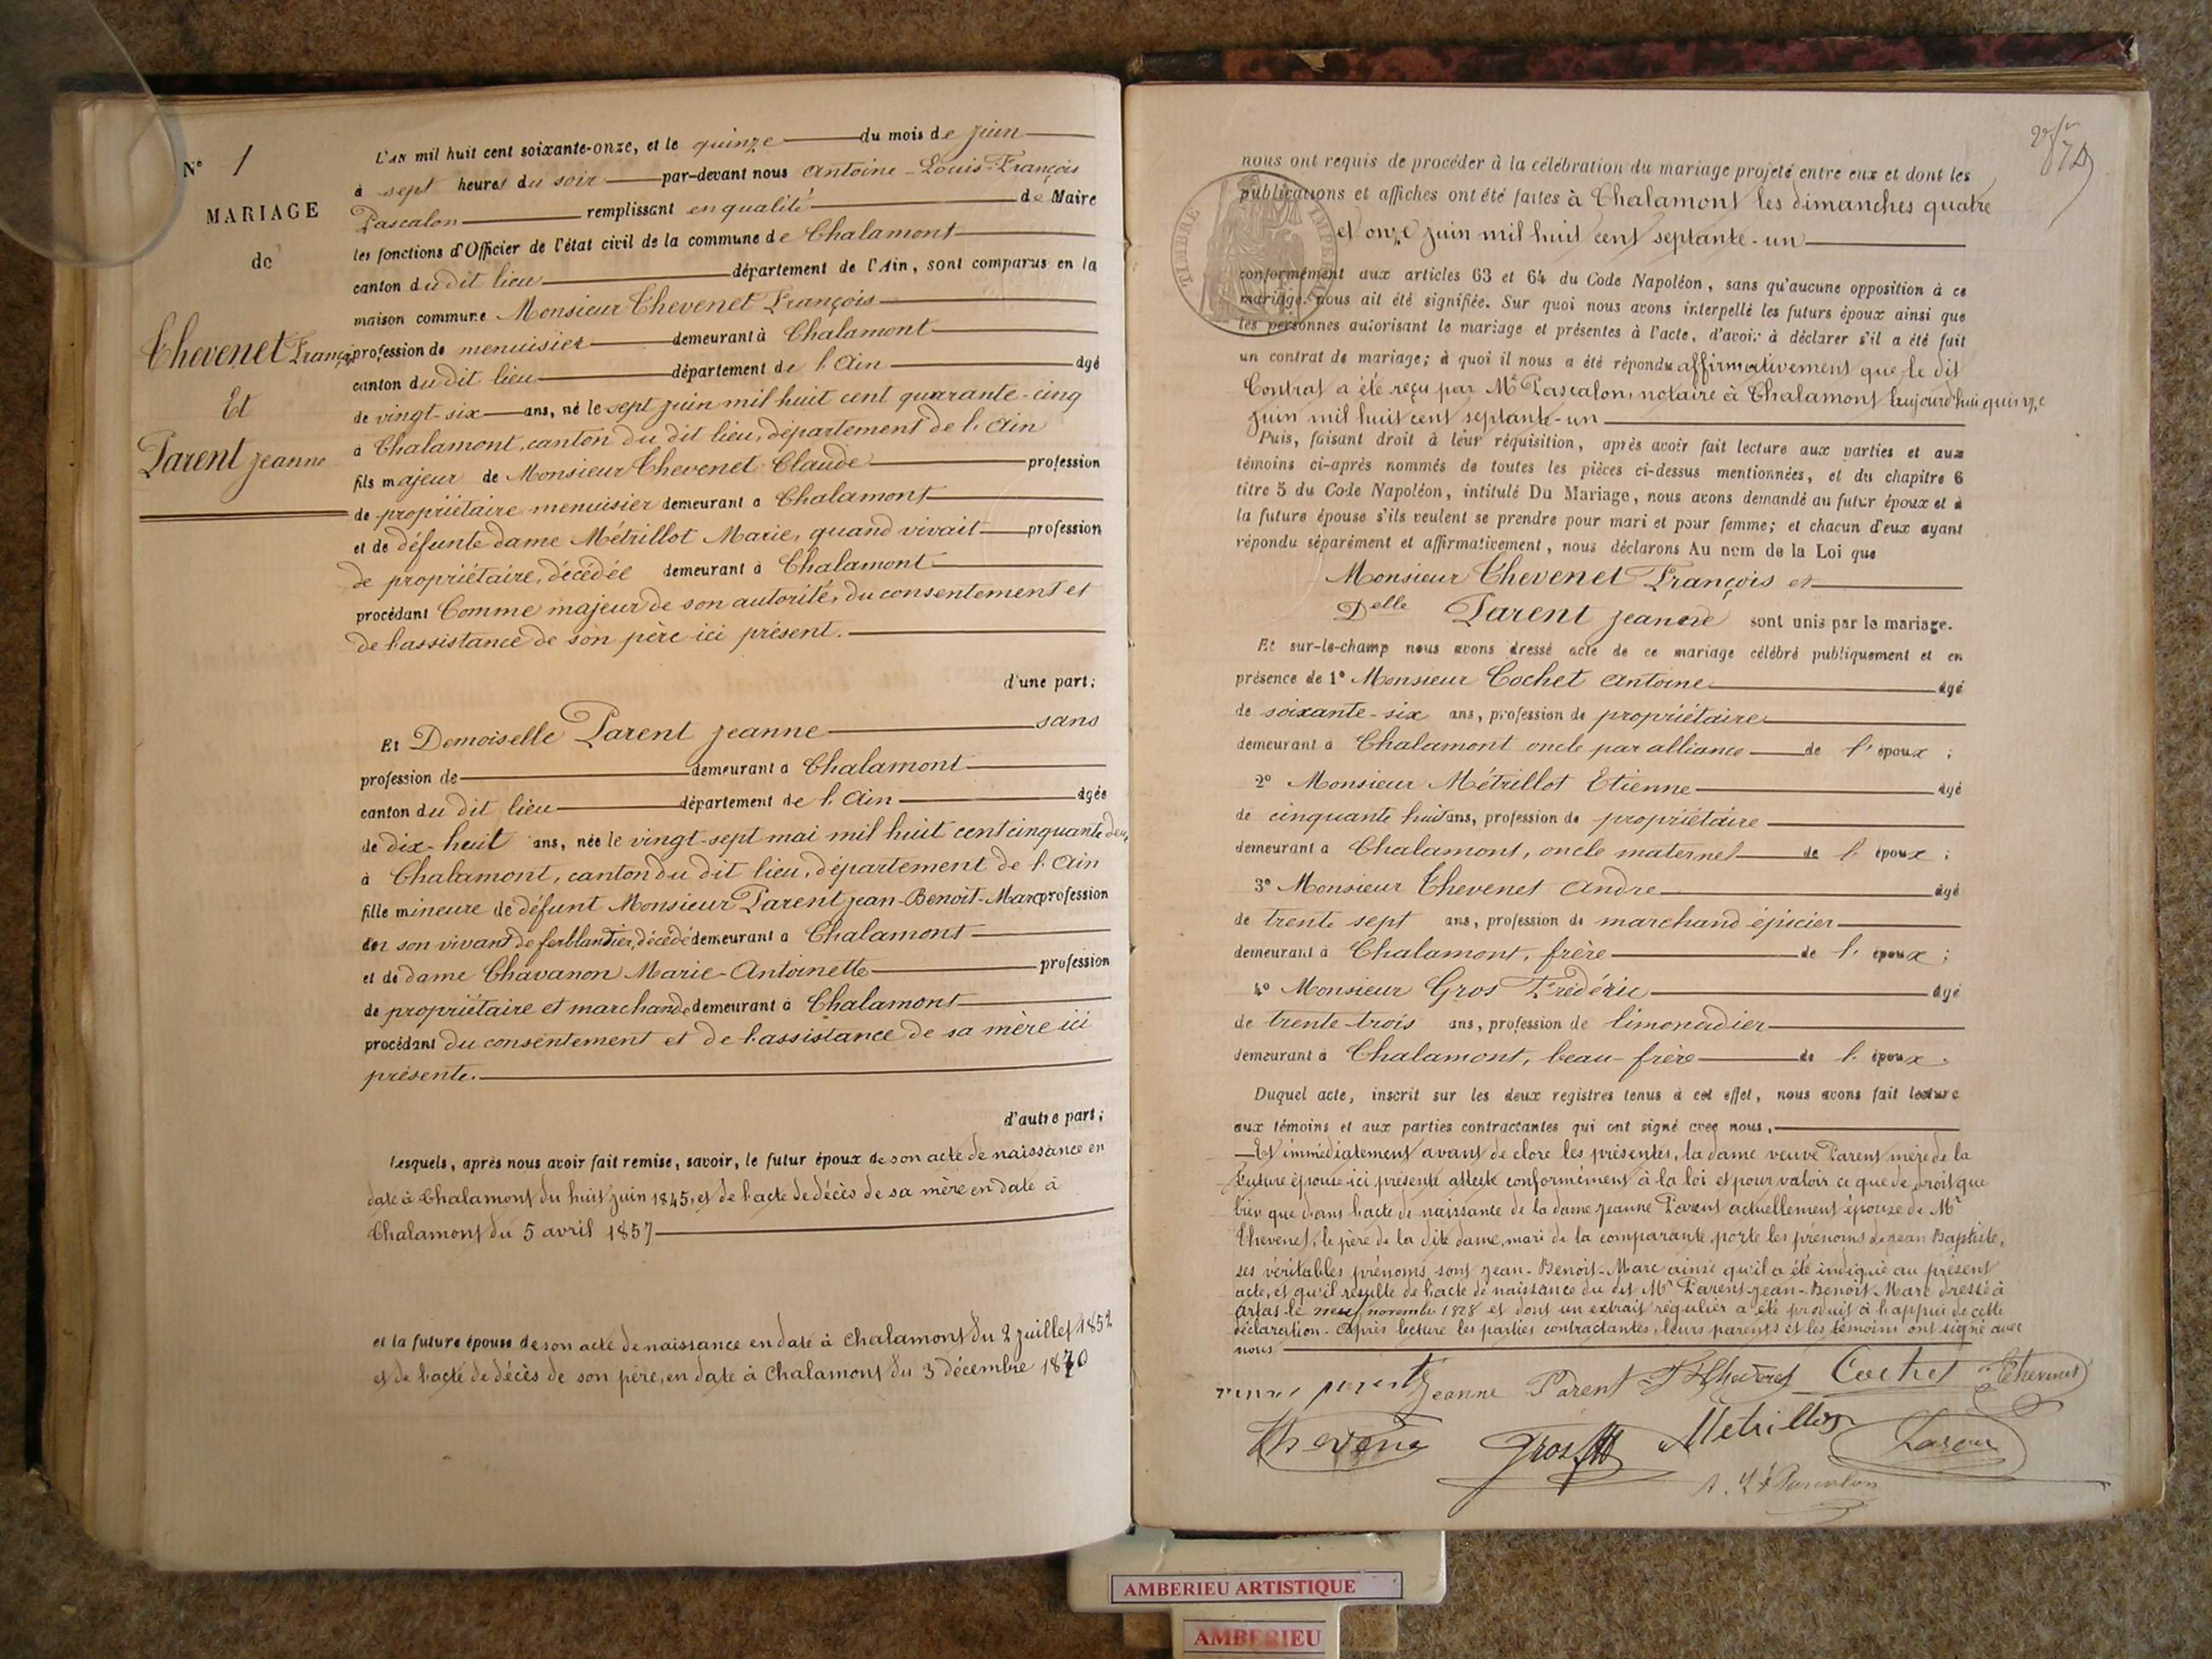 N° 1
MARIAGE
de
Chevenet François
Et
Parent Jeanne
L'AN mil huit cent soixante-onze, et le quinze du mois de juin
à sept heures du soir par-devant nous Antoine-Louis-François
Pascalon remplissant en qualité de Maire
les fonctions d'Officier de l'état civil de la commune de Chalamont
canton du dit lieu département de l'Ain, sont comparus en la
maison commune Monsieur Chevenet François
profession de menuisier demeurant à Chalamont
canton du dit lieu département de l'Ain âgé
de vingt-six ans, né le sept juin mil huit cent quarante-cinq
à Chalamont, canton du dit lieu, département de l'Ain
fils majeur de Monsieur Chevenet Claude profession
de propriétaire menuisier demeurant à Chalamont
et de défunte dame Métrillot Marie, quand vivait profession
de propriétaire, décédée demeurant à Chalamont
procédant Comme majeur de son autorité, du consentement et
de l'assistance de son père ici présent.
d'une part;
Et Demoiselle Parent Jeanne sans
profession de demeurant à Chalamont
canton du dit lieu département de l'Ain âgée
de dix-huit ans, née le vingt-sept mai mil huit cent cinquante deux
à Chalamont, canton du dit lieu, département de l'Ain
fille mineure de défunt Monsieur Parent Jean-Benoît-Marc profession
en son vivant de ferblantier, décédé demeurant à Chalamont
et de dame Chavanon Marie-Antoinette profession
de propriétaire et marchande demeurant à Chalamont
procédant du consentement et de l'assistance de sa mère ici
présente.
d'autre part;
Lesquels, après nous avoir fait remise, savoir, le futur époux de son acte de naissance en
date à Chalamont du huit juin 1845, et de l'acte de décès de sa mère en date à
Chalamont du 5 avril 1857
et la future épouse de son acte de naissance en date à Chalamont du 2 juillet 1852
et de l'acte de décès de son père, en date à Chalamont du 3 décembre 1870
nous ont requis de procéder à la célébration du mariage projeté entre eux et dont les
publications et affiches ont été faites à Chalamont les dimanches quatre
et onze juin mil huit cent septante-un
TIMBRE IMPERIAL
conformément aux articles 63 et 64 du Code Napoléon, sans qu'aucune opposition à ce
mariage nous ait été signifiée. Sur quoi nous avons interpellé les futurs époux ainsi que
les personnes autorisant le mariage et présentes à l'acte, d'avoir à déclarer s'il a été fait
un contrat de mariage; à quoi il nous a été répondu affirmativement que le dit
Contrat a été reçu par Mr Pascalon, notaire à Chalamont aujourd'hui quinze
juin mil huit cent septante-un
Puis, faisant droit à leur réquisition, après avoir fait lecture aux parties et aux
témoins ci-après nommés de toutes les pièces ci-dessus mentionnées, et du chapitre 6
titre 5 du Code Napoléon, intitulé Du Mariage, nous avons demandé au futur époux et à
la future épouse s'ils veulent se prendre pour mari et pour femme; et chacun d'eux ayant
répondu séparément et affirmativement, nous déclarons Au nom de la Loi que
Monsieur Chevenet François et
Delle Parent Jeanne sont unis par le mariage.
Et sur-le-champ nous avons dressé acte de ce mariage célébré publiquement et en
présence de 1° Monsieur Cochet Antoine âgé
de soixante-six ans, profession de propriétaire
demeurant à Chalamont oncle par alliance de l'époux;
2° Monsieur Métrillot Etienne âgé
de cinquante huit ans, profession de propriétaire
demeurant à Chalamont, oncle maternel de l'époux;
3° Monsieur Chevenet André âgé
de trente sept ans, profession de marchand épicier
demeurant à Chalamont, frère de l'époux;
4° Monsieur Gros Frédéric âgé
de trente-trois ans, profession de limonadier
demeurant à Chalamont, beau-frère de l'époux.
Duquel acte, inscrit sur les deux registres tenus à cet effet, nous avons fait lecture
aux témoins et aux parties contractantes qui ont signé avec nous.
Et immédiatement avant de clore les présentes, la dame veuve Parent mère de la
future épouse ici présente atteste conformément à la loi et pour valoir ce que de droit que
bien que dans l'acte de naissance de la dame Jeanne Parent actuellement épouse de Mr
Chevenet, le père de la dite dame, mari de la comparante, porte les prénoms de Jean Baptiste,
ses véritables prénoms sont Jean-Benoît-Marc ainsi qu'il a été indiqué au présent
acte, et qu'il résulte de l'acte de naissance du dit Mr Parent Jean-Benoît-Marc dressé à
Artas le neuf novembre 1828 et dont un extrait régulier a été produit à l'appui de cette
déclaration. Après lecture les parties contractantes, leurs parents et les témoins ont signé avec
nous
Jeanne Parent Cochet Chevenet
Gros Metrillot
AMBERIEU ARTISTIQUE
AMBERIEU